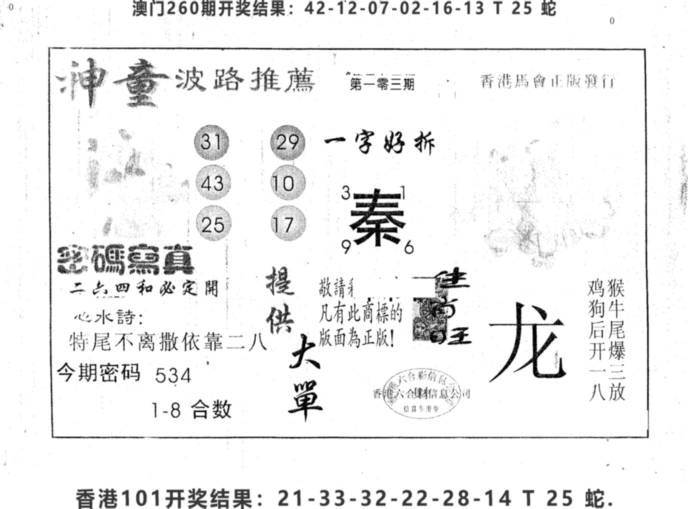 澳门260期开奖结果：42-12-07-02-16-13 T 25 蛇
神童 波路推薦 第一零三期 香港馬會正版發行
31 29 一字好拆
43 10
25 17
3 1
秦
9 6
密碼寫真
二六四和必定開
心水詩:
特尾不离撒依靠二八
今期密码 534
1-8 合数
提供
大單
敬請
凡有此商標的
版面為正版!
龙
猴牛尾爆三放
鸡狗后开一八
香港101开奖结果：21-33-32-22-28-14 T 25 蛇.